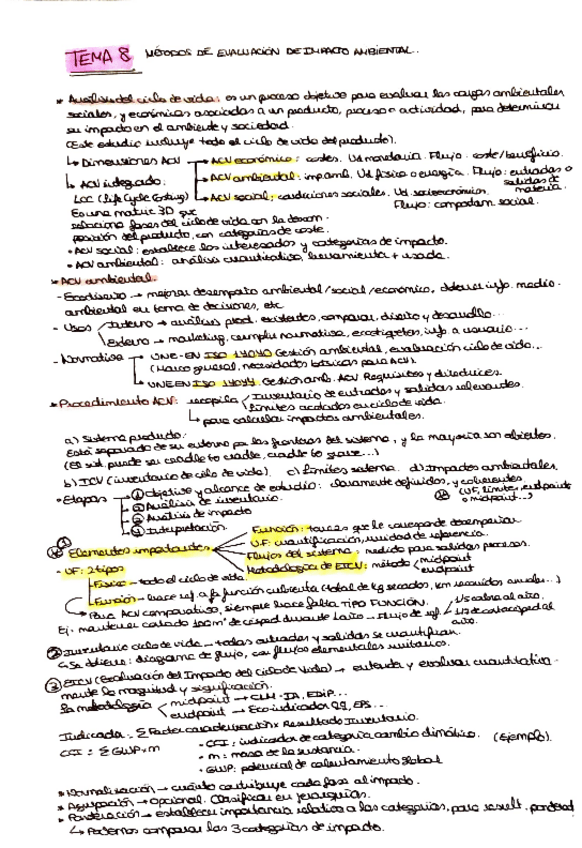 TEMA 8 MÉTODOS DE EVALUACIÓN DE IMPACTO AMBIENTAL.
* Análisis del ciclo de vida: es un proceso objetivo para evaluar las cargas ambientales
sociales, y económicas asociadas a un producto, proceso o actividad, para determinar
su impacto en el ambiente y sociedad.
(Este estudio incluye todo el ciclo de vida del producto).
↳ Dimensiones ACV → ACV económico: costes. Ud monetaria. Flujo: coste/beneficio.
→ ACV ambiental: imp amb. Ud física o energía. Flujo: entradas o salidas de materia.
→ ACV social: condiciones sociales. Ud. socioeconómica. Flujo: comportam. social.
↳ ACV integrado:
LCC (Life Cycle Costing)
Es una matriz 3D que
relaciona fases del ciclo de vida con la descom-
posición del producto, con categorías de coste.
• ACV social: establece los interesados y categorías de impacto.
• ACV ambiental: análisis cuantitativo, herramienta + usada.
* ACV ambiental:
- Ecodiseño → mejorar desempeño ambiental/social/económico, obtener info. medio-
ambiental en toma de decisiones, etc
- Usos Interno → análisis prod. existentes, comparar, diseño y desarrollo...
Externo → marketing, cumplir normativa, ecoetiquetas, inf. a usuario...
- Normativa → UNE-EN ISO 14040 Gestión ambiental, evaluación ciclo de vida...
(Marco general, necesidades básicas para ACV).
↳ UNE EN ISO 14044. Gestión amb. ACV Requisitos y directrices.
* Procedimiento ACV: recopila Inventario de entradas y salidas relevantes.
límites acotados en ciclo de vida.
↳ para calcular impactos ambientales.
a) Sistema producto.
Está separado de su entorno por las fronteras del sistema, y la mayoría son abiertos.
(El sist. puede ser cradle to cradle, cradle to grave...)
b) ICV (inventario de ciclo de vida). c) límites sistema. d) Impactos ambientales.
• Etapas → ① Objetivo y alcance de estudio: claramente definidos, y coherentes
(UF, límites, endpoints o midpoint...)
→ ② Análisis de inventario.
→ ③ Análisis de impacto
→ ④ Interpretación.
① Elementos importantes
Función: tareas que le corresponde desempeñar
UF: cuantificación, unidad de referencia.
Flujos del sistema: medido para salidas procesos.
Metodología de EICV: método midpoint
endpoint
- UF: 2 tipos
Física → todo el ciclo de vida.
Función → hace ref. a función cubierta (total de kg secados, km recorridos anuales...)
→ Para ACV comparativo, siempre hace falta TIPO FUNCIÓN.
Ej. mantener cortado 100m² de césped durante 1 año → Flujo de ref.
② Inventario ciclo de vida → todas entradas y salidas se cuantifican.
↳ Se obtiene: diagrama de flujo, con flujos elementales unitarios.
③ EICV (Evaluación del Impacto del Ciclo de Vida) → entenda y evaluar cuantitativa-
mente la magnitud y significación.
La metodología midpoint → CLM-IA, EDIP...
endpoint → Eco-indicador 99, EPS...
Indicador = Σ Factor caracterización × Resultado Inventario.
CCI = Σ GWP × m
• CCI: indicador de categoría cambio climático. (Ejemplo).
• m: masa de la sustancia.
• GWP: potencial de calentamiento global
* Normalización → cuánto contribuye cada fase al impacto.
* Agrupación → Opcional. Clasificar en jerarquías.
* Ponderación → establecer importancia relativa a las categorías, para result. ponderad
↳ Podemos comparar las 3 categorías de impacto.